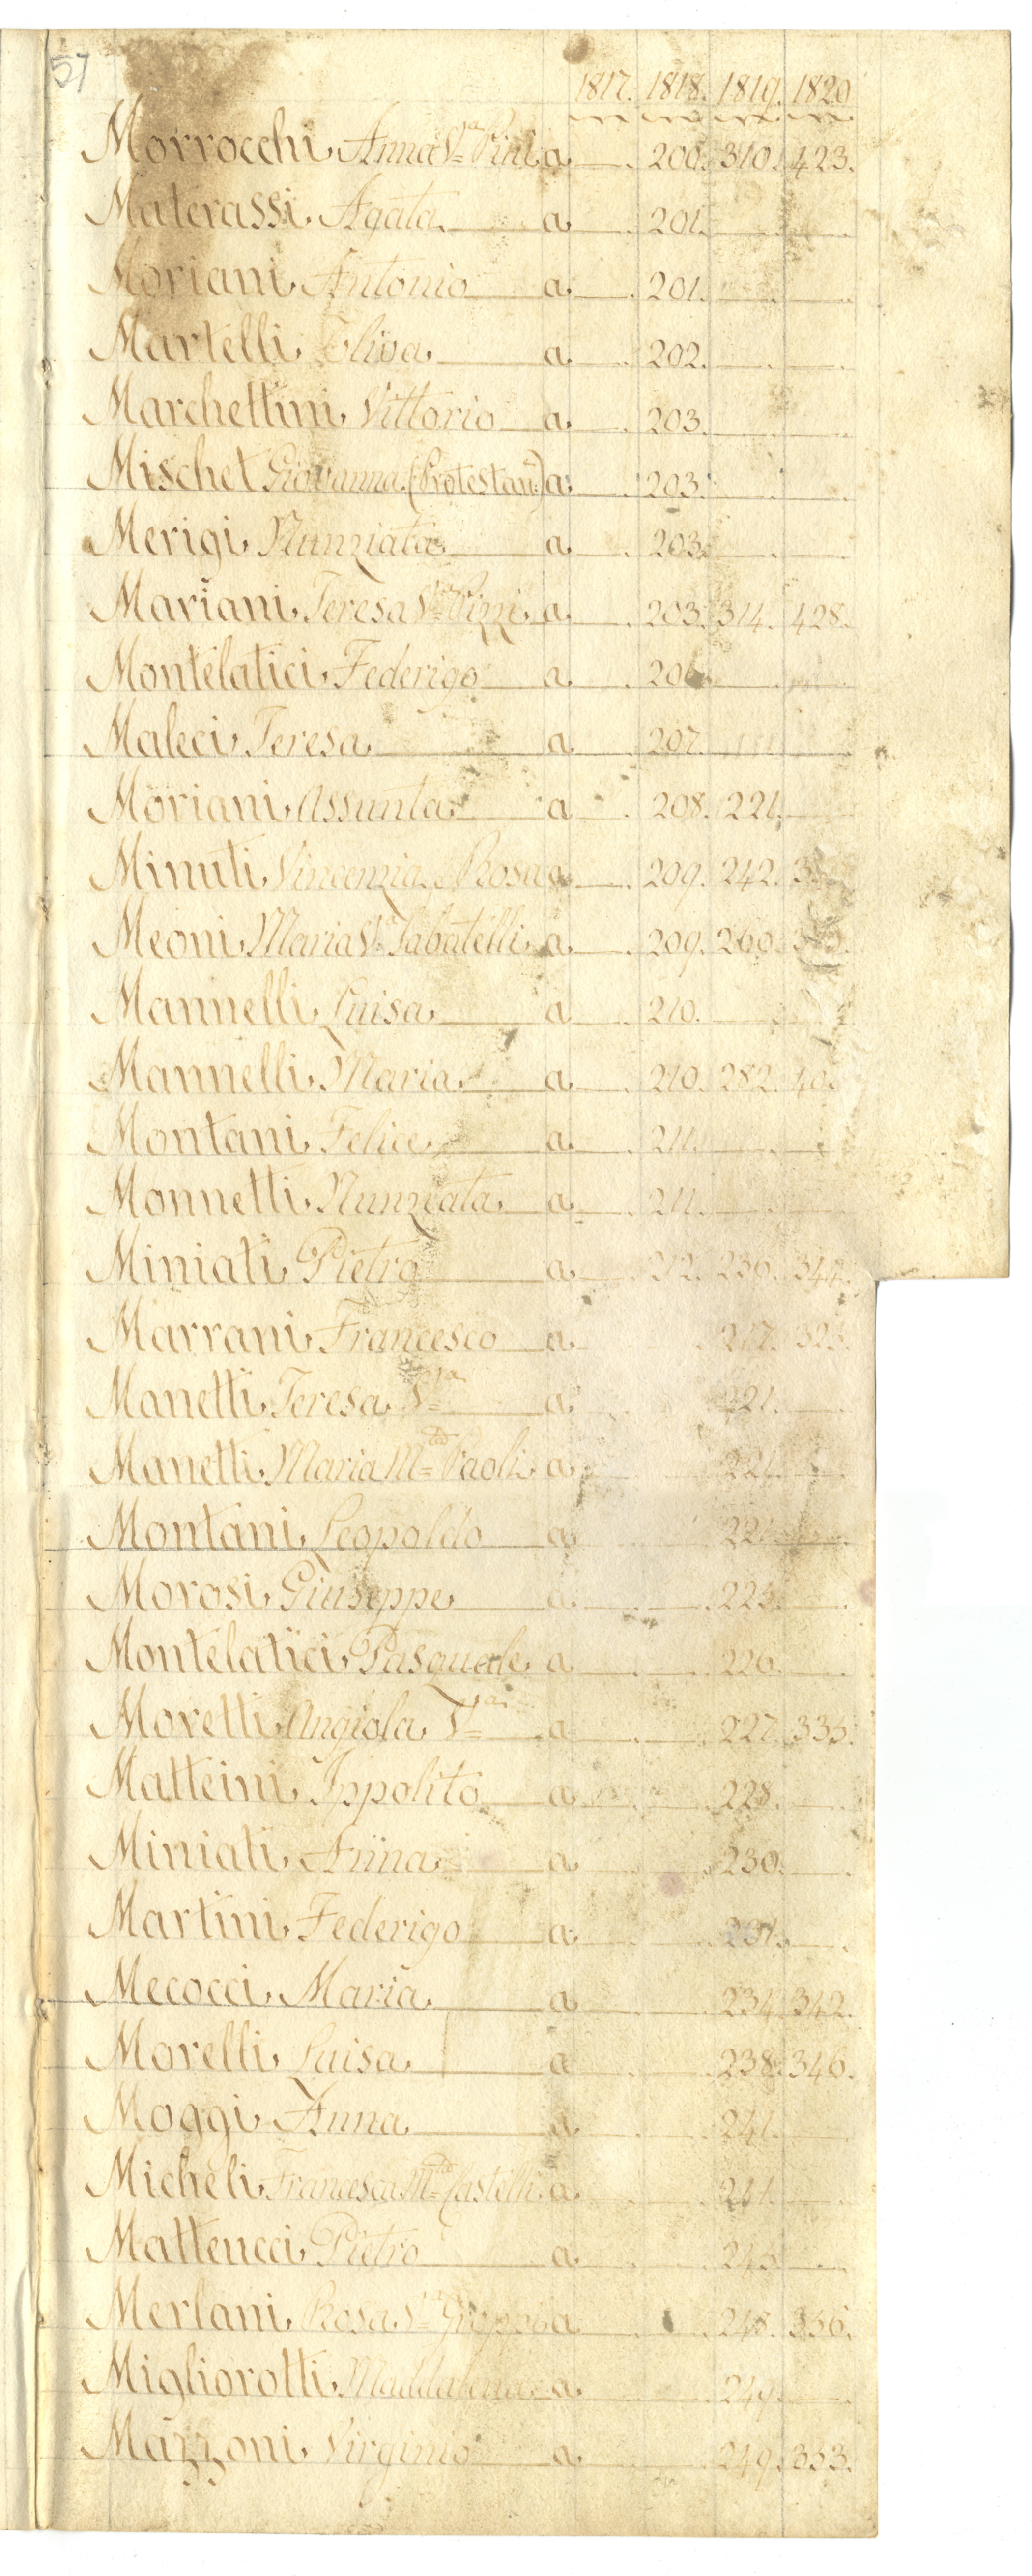 57
1817. 1818. 1819. 1820
Morrocchi Anna Va a 200. 310. 423.
Materassi Agata a 201.
Moriani Antonio a 201.
Martelli Elisa a 202.
Marchettini Vittorio a 203.
Mischet Giovanna (Protestan:) a 203.
Merigi Nunziata a 203.
Mariani Teresa Va Pizzi a 203. 314. 428.
Montelatici Federigo a 206.
Maleci Teresa a 207.
Moriani Assunta a 208. 221.
Minuti Vincenzia, e Rosa a 209. 242.
Meoni Maria Va Sabatelli a 209. 260.
Mannelli Luisa a 210.
Mannelli Maria a 210. 282.
Montani Felice a 211.
Monnetti Nunziata a 211.
Miniati Pietro a 212. 236. 344.
Marrani Francesco a 217. 323.
Manetti Teresa Va a 221.
Manetti Maria Mta Paoli a 221.
Montani Leopoldo a
Morosi Giuseppe a 225.
Montelatici Pasquale a 226.
Moretti Angiola Va a 227. 335.
Matteini Ippolito a 228.
Miniati Anna a 230.
Martini Federigo a 231.
Mecocci Maria a 234. 342.
Morelli Luisa a 238. 346.
Moggi Anna a 241.
Micheli Francesca Mta Castelli a 241.
Matteucci Pietro a 245.
Merlani Rosa Va a 248. 356.
Migliorotti Maddalena a 249.
Mazzoni Virginio a 249. 353.